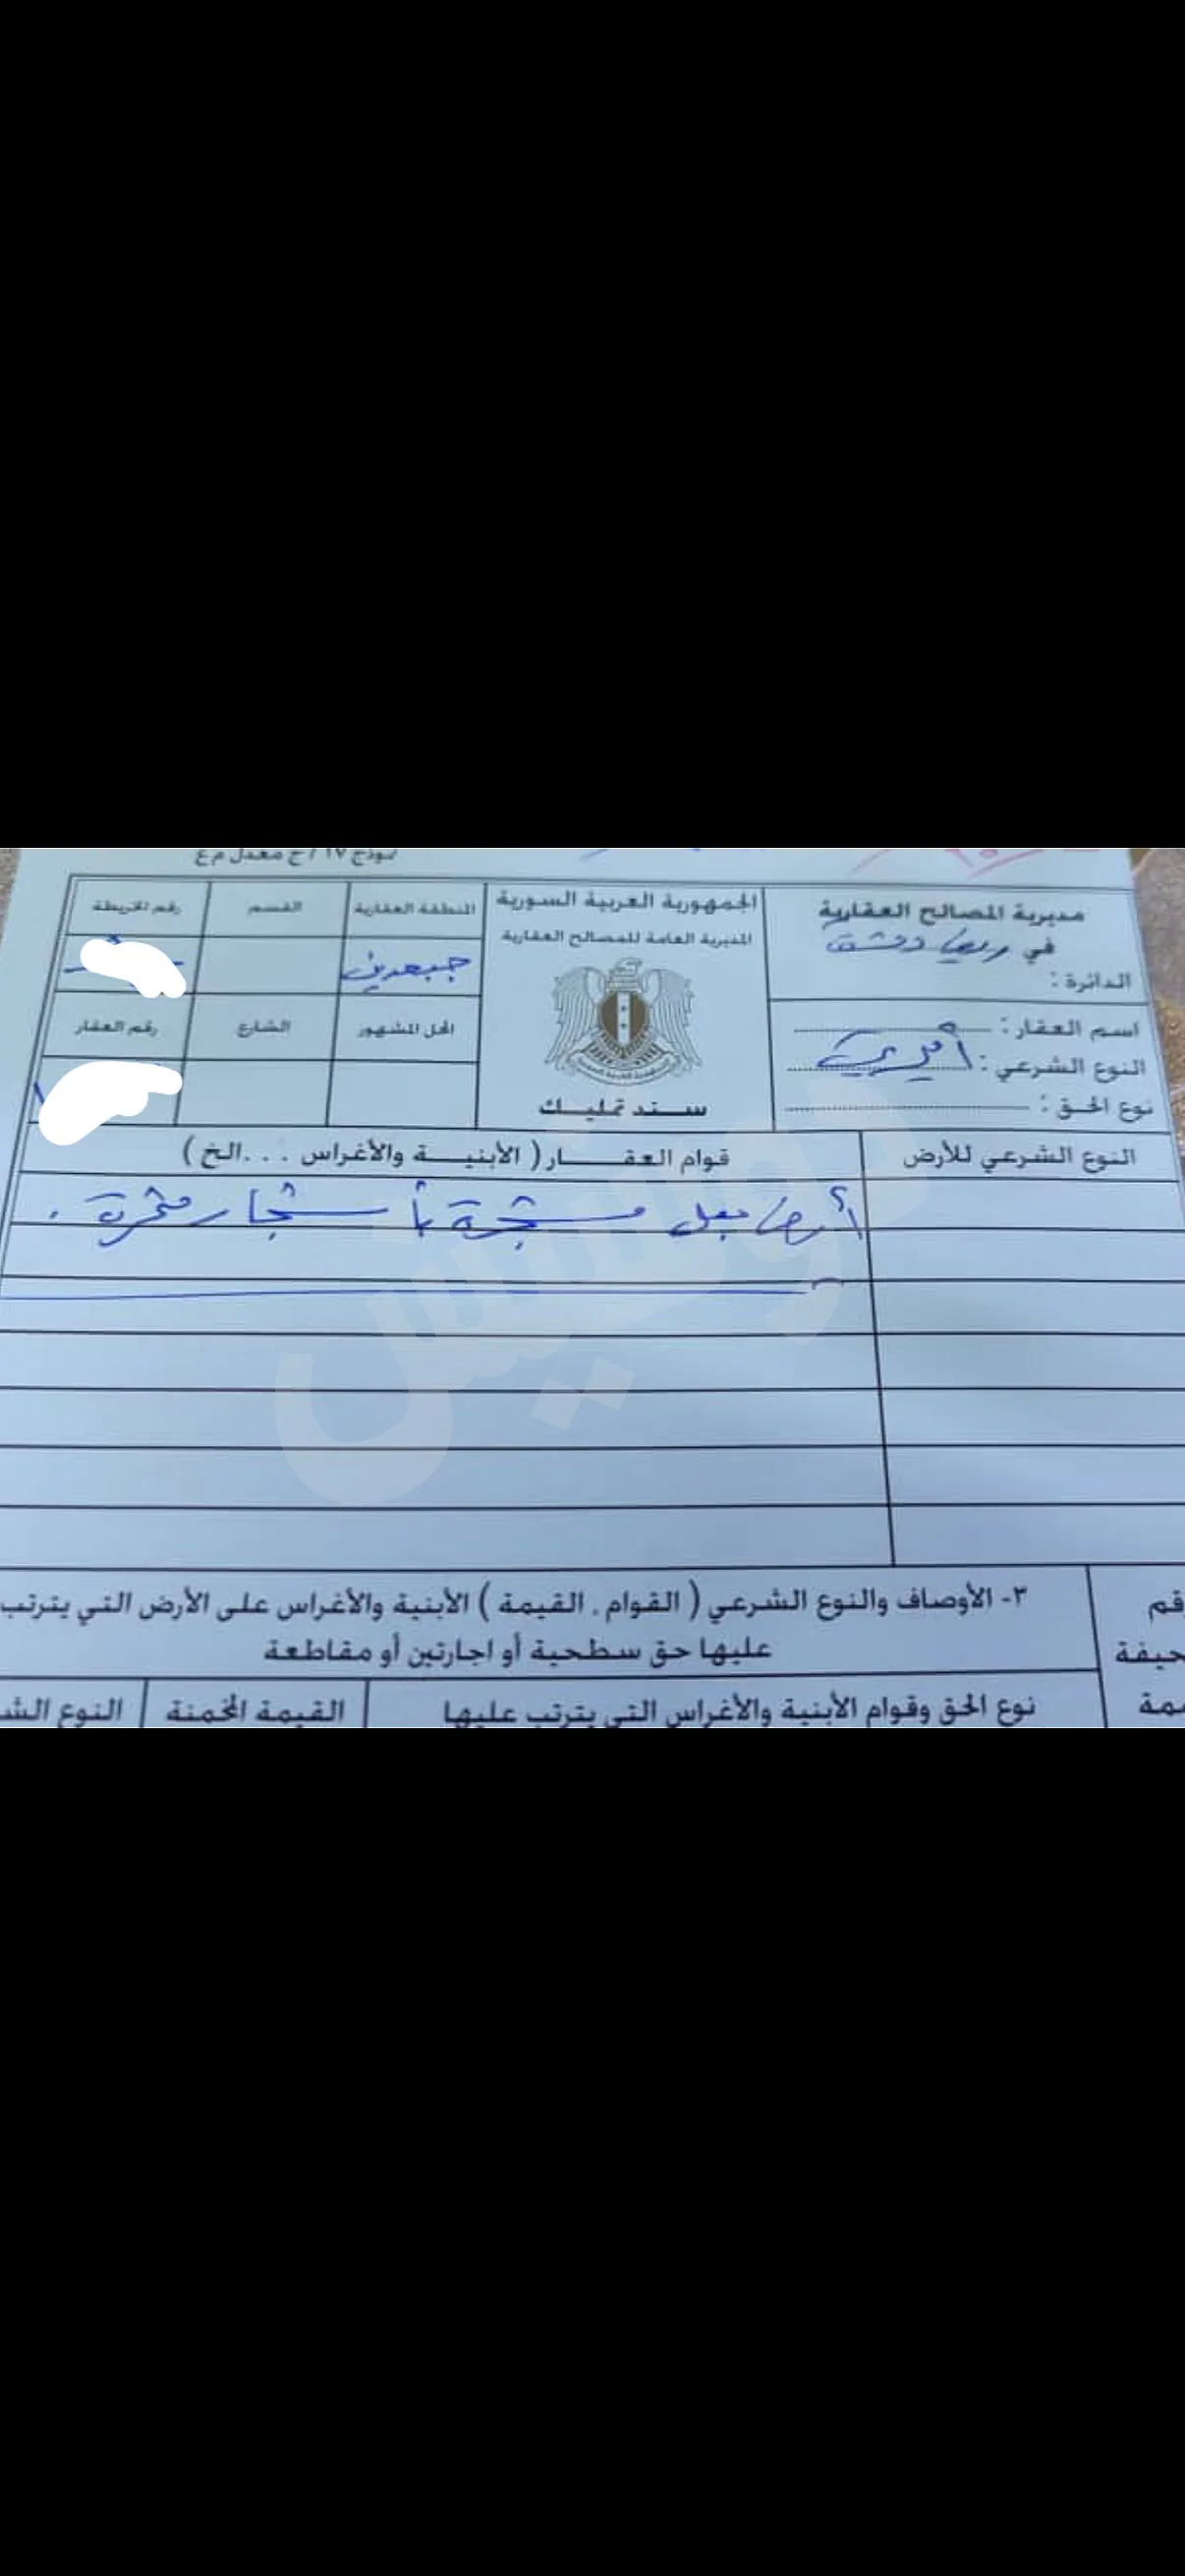 نموذج ١٧ / ح معدل م ع
مديرية المصالح العقارية
في ريف دمشق
الدائرة :
اسم العقار :
النوع الشرعي : أميري
نوع الحق :
الجمهورية العربية السورية
المديرية العامة للمصالح العقارية
سند تمليك
المنطقة العقارية
القسم
رقم الخريطة
جبعدين
المحل المشهور
الشارع
رقم العقار
النوع الشرعي للأرض
قوام العقار ( الأبنية والأغراس . . . الخ )
أرض بعل مشجرة بأشجار مثمرة .
٣- الأوصاف والنوع الشرعي ( القوام . القيمة ) الأبنية والأغراس على الأرض التي يترتب
عليها حق سطحية أو اجارتين أو مقاطعة
نوع الحق وقوام الأبنية والأغراس التي يترتب عليها
القيمة المخمنة
النوع الش